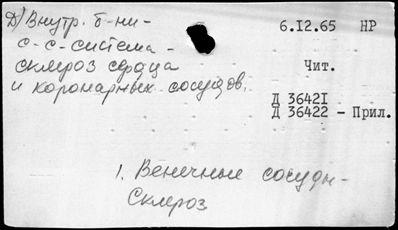 Д) Внутр. б-ни -
6.I2.65 НР
с-с-система -
склероз сердца
Чит.
и коронарных сосудов.
Д 3642I
Д 36422 - Прил.
1. Венечные сосуды -
Склероз